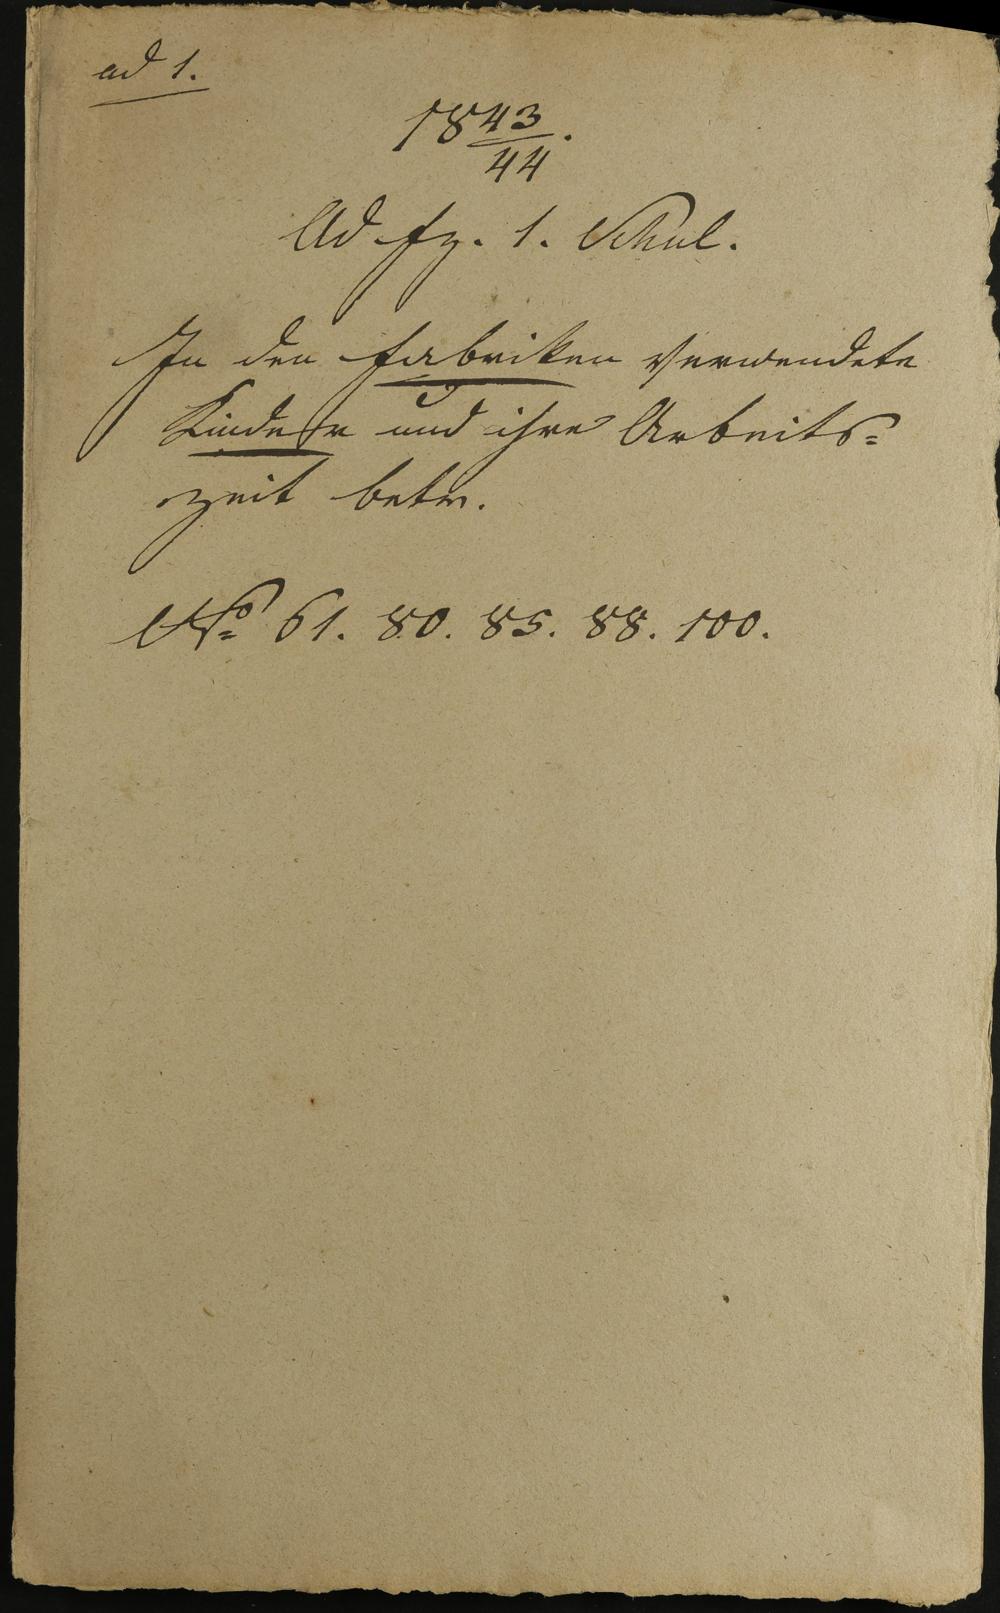 ad 1.
18 43/44.
Ad fz. 1. Schul.
In den Fabriken verwendete
Kinder und ihre Arbeits=
zeit betr.
No 61. 80. 85. 88. 100.